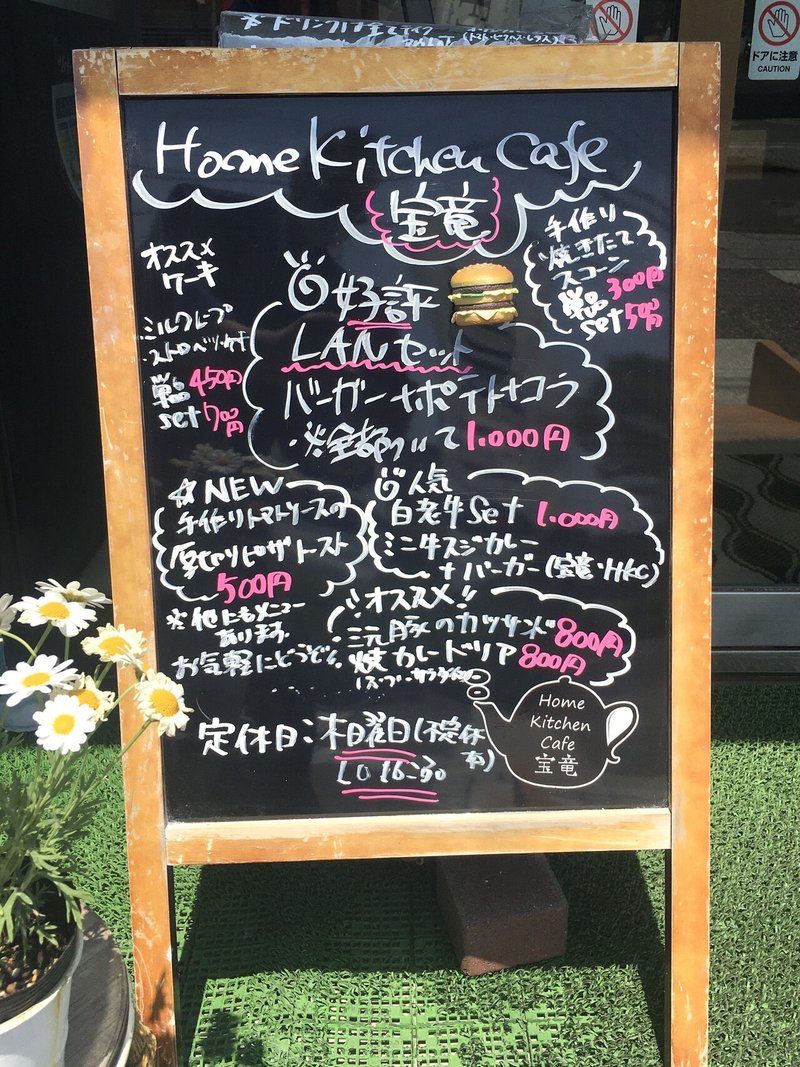 ※ドリンクは全てテイク
ドアに注意
CAUTION
Home Kitchen Cafe
宝竜
オススメ
ケーキ
ミルクレープ
単品 450円
set 700円
手作り
焼きたて
スコーン
単品 300円
set 500円
好評
LANセット
バーガー+ポテト+コーラ
1.000円
☆NEW
手作りトマトソースの
厚切りピザトースト
500円
※他にもメニュー
あります。
お気軽にどうぞ。
人気
白老牛Set 1.000円
ミニ牛スジカレー
+バーガー(宝竜・HKC)
オススメ!!
三元豚のカツサンド 800円
焼カレードリア 800円
定休日:木曜日(不定休
有)
LO 16:30
Home
Kitchen
Cafe
宝竜